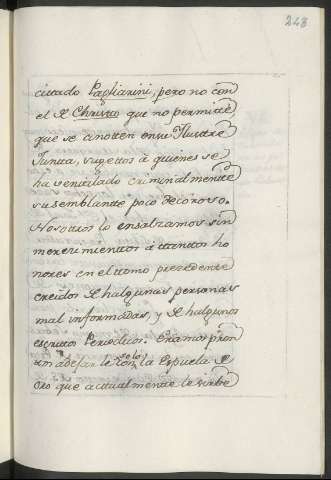 248
citado Pagliarini, pero no con
el de Christo que no permite,
que se anoten en su Ilustre
Junta, sugettos à quienes se
ha ventilado criminalmente
su semblante poco decoroso.
Nosotros lo ensalzamos sin
merecimientos à tantos ho
nores en el tomo precedente
creidos de halgunas personas
mal informadas, y de halgunos
escritos Periodicos. Eramos pron
tos a dejarle con solo la Espuela de
Oro que actualmente le sirbe